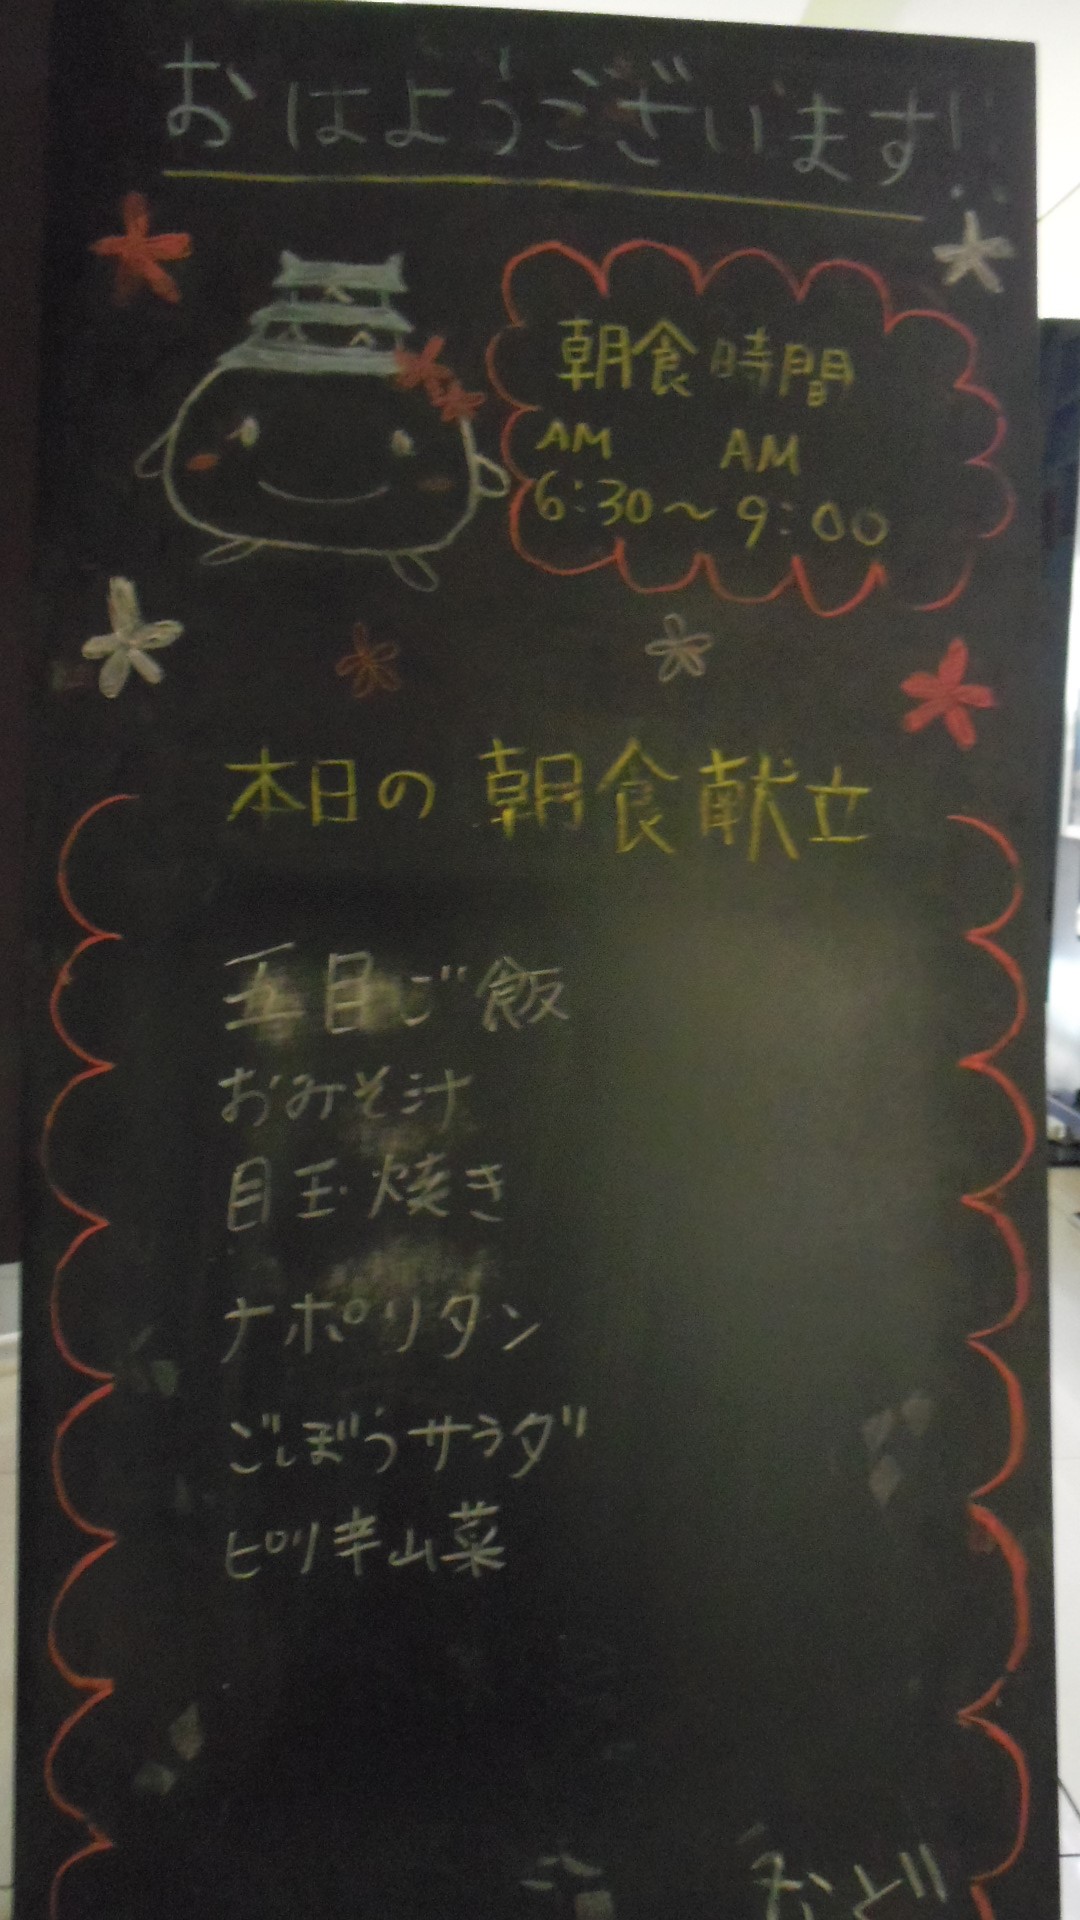 おはようございます!!
朝食時間
AM AM
6:30〜9:00
本日の朝食献立
五目ご飯
おみそ汁
目玉焼き
ナポリタン
ごぼうサラダ
ピリ辛山菜
など